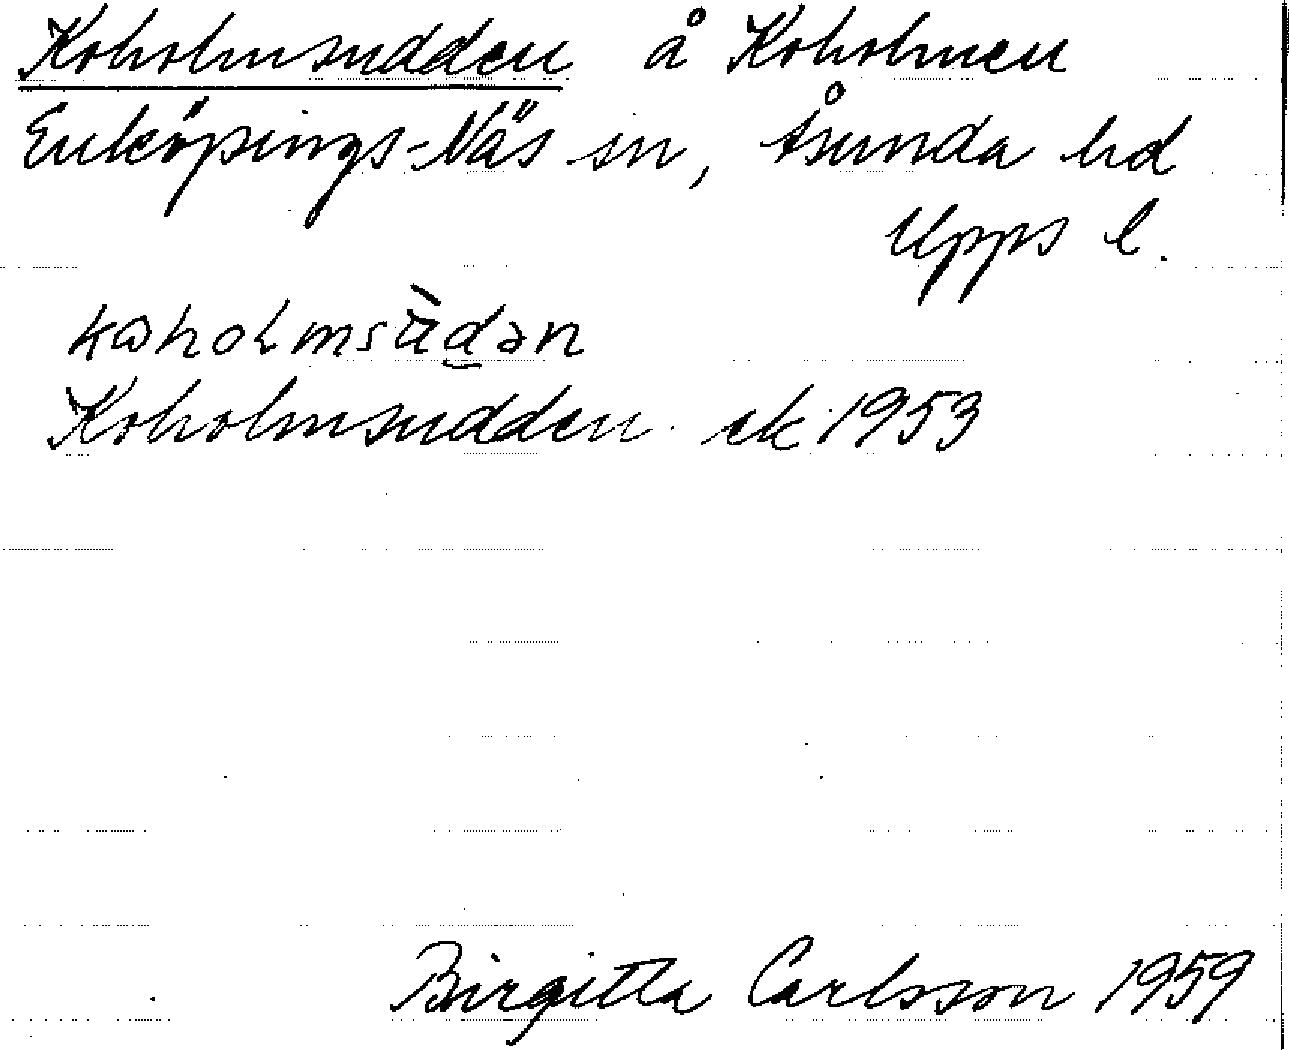 Koholmsudden å Koholmen
Enköpings-Näs sn, Åsunda hd
Upps l.
Koholmsudden ek 1953
Birgitta Carlsson 1959